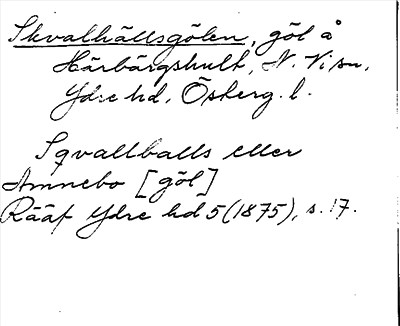 Skvalhällsgölen, göl å
Härbärgshult, N. Vi sn,
Ydre hd, Österg. l.
Sqvallballs eller
Amnebo [göl]
Rääf Ydre hd 5 (1875), s. 17.